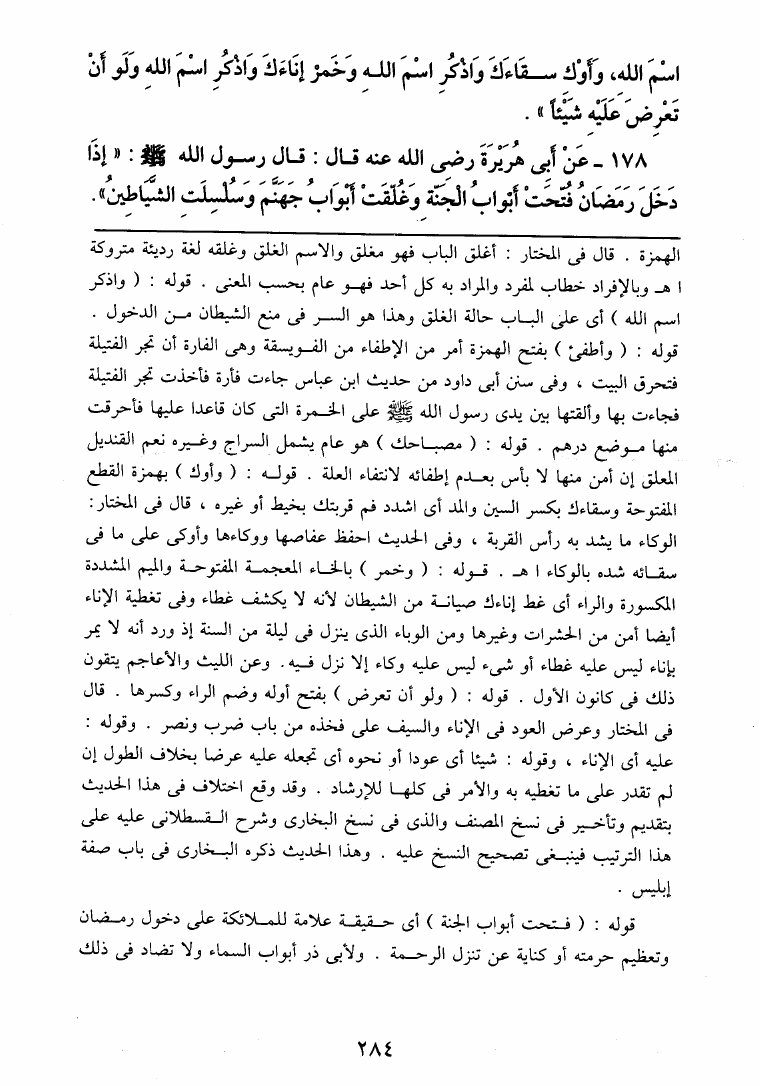 اسْمَ الله، وأَوْك سـقَاءَكَ وَاذْكُرِ اسْمَ اللـهِ وَخَمرْ إِنَاءَكَ وَاذْكُرِ اسْمَ اللهِ وَلَو أَنْ
تَعْرِضَ عَلَيْهِ شَيْئاً » .
١٧٨ - عَنْ أَبِى هُرَيْرَةَ رضى الله عنه قـال : قـال رسـول الله ﷺ : « إِذَا
دَخَلَ رَمَضَانُ فُتِّحَتْ أَبْوابُ الْجَنَّة وَغُلِّقَتْ أَبْوَابُ جَهَنَّمَ وَسُلْسِلَت الشَّيَاطِينُ».
الهمزة . قال فى المختار : أغلق الباب فهو مغلق والاسم الغلق وغلقه لغة رديئة متروكة
ا هـ وبالإفراد خطاب لمفرد والمراد به كل أحد فهـو عام بحسب المعنى . قوله : ( واذكر
اسم الله ) أى على البـاب حالة الغلق وهذا هو السـر فى منع الشيطان مـن الدخول .
قوله : ( وأطفئ ) بفتح الهمزة أمر من الإطفاء من الفـويسقة وهى الفارة أن تجر الفتيلة
فتحرق البيت ، وفى سنن أبى داود من حديث ابن عباس جاءت فأرة فأخذت تجر الفتيلة
فجاءت بها وألقتها بين يدى رسول الله ﷺ على الخـمرة التى كان قاعدا عليها فأحرقت
منها مـوضع درهم . قوله : ( مصبـاحك ) هو عام يشمل السراج وغـيره نعم القنديل
المعلق إن أمن منها لا بأس بعـدم إطفائه لانتفاء العلة . قولـه : ( وأوك ) بهمزة القطع
المفتوحة وسقاءك بكسر السين والمد أى اشدد فم قربتك بخيط أو غيره ، قال فى المختار:
الوكاء ما يشد به رأس القربة ، وفى الحديث احفظ عفاصها ووكاءها وأوكى على ما فى
سقـائه شده بالوكاء ا هـ . قـوله : ( وخمر ) بالخـاء المعجمـة المفتوحـة والميم المشددة
المكسورة والراء أى غط إناءك صيانـة من الشيطان لأنه لا يكشف غطاء وفى تغطية الإناء
أيضا أمن من الحشرات وغيرها ومن الوباء الذى ينزل فى ليلة من السنة إذ ورد أنه لا يمر
بإناء ليس عليه غطاء أو شىء ليس عليه وكاء إلا نزل فـيه. وعن الليث والأعاجم يتقون
ذلك فى كانون الأول . قوله : ( ولو أن تعرض ) بفتح أوله وضم الراء وكسرها . قال
فى المختار وعرض العود فى الإناء والسيف على فخذه من باب ضرب ونصر . وقوله :
عليه أى الإناء ، وقوله : شيئا أى عودا أو نحوه أى تجعله عليه عرضا بخلاف الطول إن
لم تقدر على ما تغطيه به والأمر فى كلهـا للإرشاد . وقد وقع اختلاف فى هذا الحديث
بتقديم وتأخـير فى نسخ المصنف والذى فى نسخ البخارى وشرح القـسطلانى عليه على
هذا الترتيب فينبـغى تصحيح النسخ عليه . وهذا الحديث ذكره البـخارى فى باب صفة
إبليس .
قوله : ( فـتحت أبواب الجنة ) أى حـقيقـة علامة للمـلائكة على دخول رمـضان
وتعظيم حرمته أو كناية عن تنزل الرحـمة . ولأبى ذر أبواب السماء ولا تضاد فى ذلك
٢٨٤